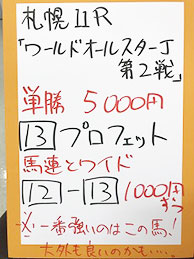 札幌11R
「ワールドオールスターJ
第2戦」
単勝 5000円
13 プロフェット
馬連とワイド
12-13 1000円ずつ
※一番強いのはこの馬!
大外も良いのかも…。